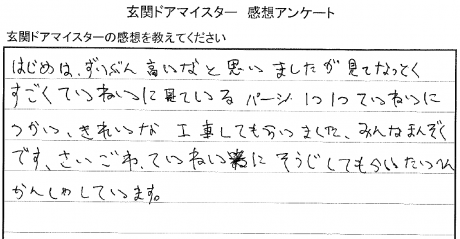 玄関ドアマイスター 感想アンケート
玄関ドアマイスターの感想を教えてください
はじめは、ずいぶん高いなと思いましたが見てなっとく
すごくていねいに見ている パージ 1つ1つていねいに
つかい、きれいな 工事してもらいました、みんなまんぞく
です、さいごわ、ていねいに そうじしてもらいたいへん
かんしゃしています。